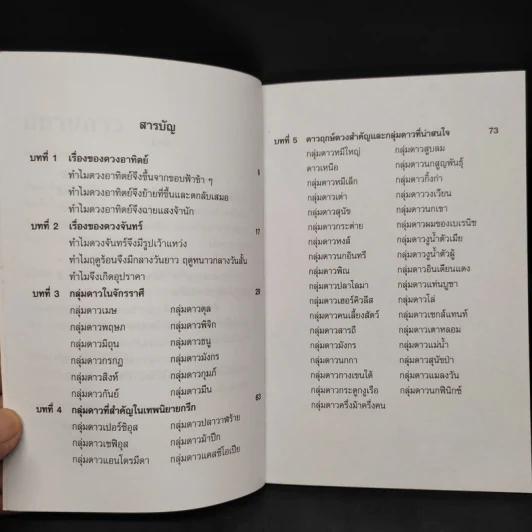 สารบัญ
บทที่ 1 เรื่องของดวงอาทิตย์ 1
ทำไมดวงอาทิตย์จึงขึ้นจากขอบฟ้าช้า ๆ
ทำไมดวงอาทิตย์จึงย้ายที่ขึ้นและตกลับเสมอ
ทำไมดวงอาทิตย์จึงฉายแสงจ้านัก
บทที่ 2 เรื่องของดวงจันทร์ 17
ทำไมดวงจันทร์จึงมีรูปเว้าแหว่ง
ทำไมฤดูร้อนจึงมีกลางวันยาว ฤดูหนาวกลางวันสั้น
ทำไมจึงเกิดอุปราคา
บทที่ 3 กลุ่มดาวในจักรราศี 29
กลุ่มดาวเมษ กลุ่มดาวตุล
กลุ่มดาวพฤษภ กลุ่มดาวพิจิก
กลุ่มดาวมิถุน กลุ่มดาวธนู
กลุ่มดาวกรกฎ กลุ่มดาวมังกร
กลุ่มดาวสิงห์ กลุ่มดาวกุมภ์
กลุ่มดาวกันย์ กลุ่มดาวมีน
บทที่ 4 กลุ่มดาวที่สำคัญในเทพนิยายกรีก 63
กลุ่มดาวเปอร์ซิอุส กลุ่มดาวปลาวาฬร้าย
กลุ่มดาวเซฟิอุส กลุ่มดาวม้าปีก
กลุ่มดาวแอนโดรมีดา กลุ่มดาวแคสซิโอเปีย
บทที่ 5 ดาวฤกษ์ดวงสำคัญและกลุ่มดาวที่น่าสนใจ 73
กลุ่มดาวหมีใหญ่ กลุ่มดาวสูบลม
ดาวเหนือ กลุ่มดาวนกสูญพันธุ์
กลุ่มดาวหมีเล็ก กลุ่มดาวกิ้งก่า
กลุ่มดาวเต่า กลุ่มดาววงเวียน
กลุ่มดาวสุนัข กลุ่มดาวนกเขา
กลุ่มดาวกระต่าย กลุ่มดาวผมของเบเรนิซ
กลุ่มดาวหงส์ กลุ่มดาวงูน้ำตัวเมีย
กลุ่มดาวนกอินทรี กลุ่มดาวงูน้ำตัวผู้
กลุ่มดาวพิณ กลุ่มดาวอินเดียนแดง
กลุ่มดาวปลาโลมา กลุ่มดาวแท่นบูชา
กลุ่มดาวเฮอร์คิวลีส กลุ่มดาวโล่
กลุ่มดาวคนเลี้ยงสัตว์ กลุ่มดาวเซกส์แทนท์
กลุ่มดาวสารถี กลุ่มดาวเตาหลอม
กลุ่มดาวมังกร กลุ่มดาวแม่น้ำ
กลุ่มดาวนกกา กลุ่มดาวสุนัขป่า
กลุ่มดาวกางเขนใต้ กลุ่มดาวแมลงวัน
กลุ่มดาวกระดูกงูเรือ กลุ่มดาวนกฟินิกซ์
กลุ่มดาวครึ่งม้าครึ่งคน